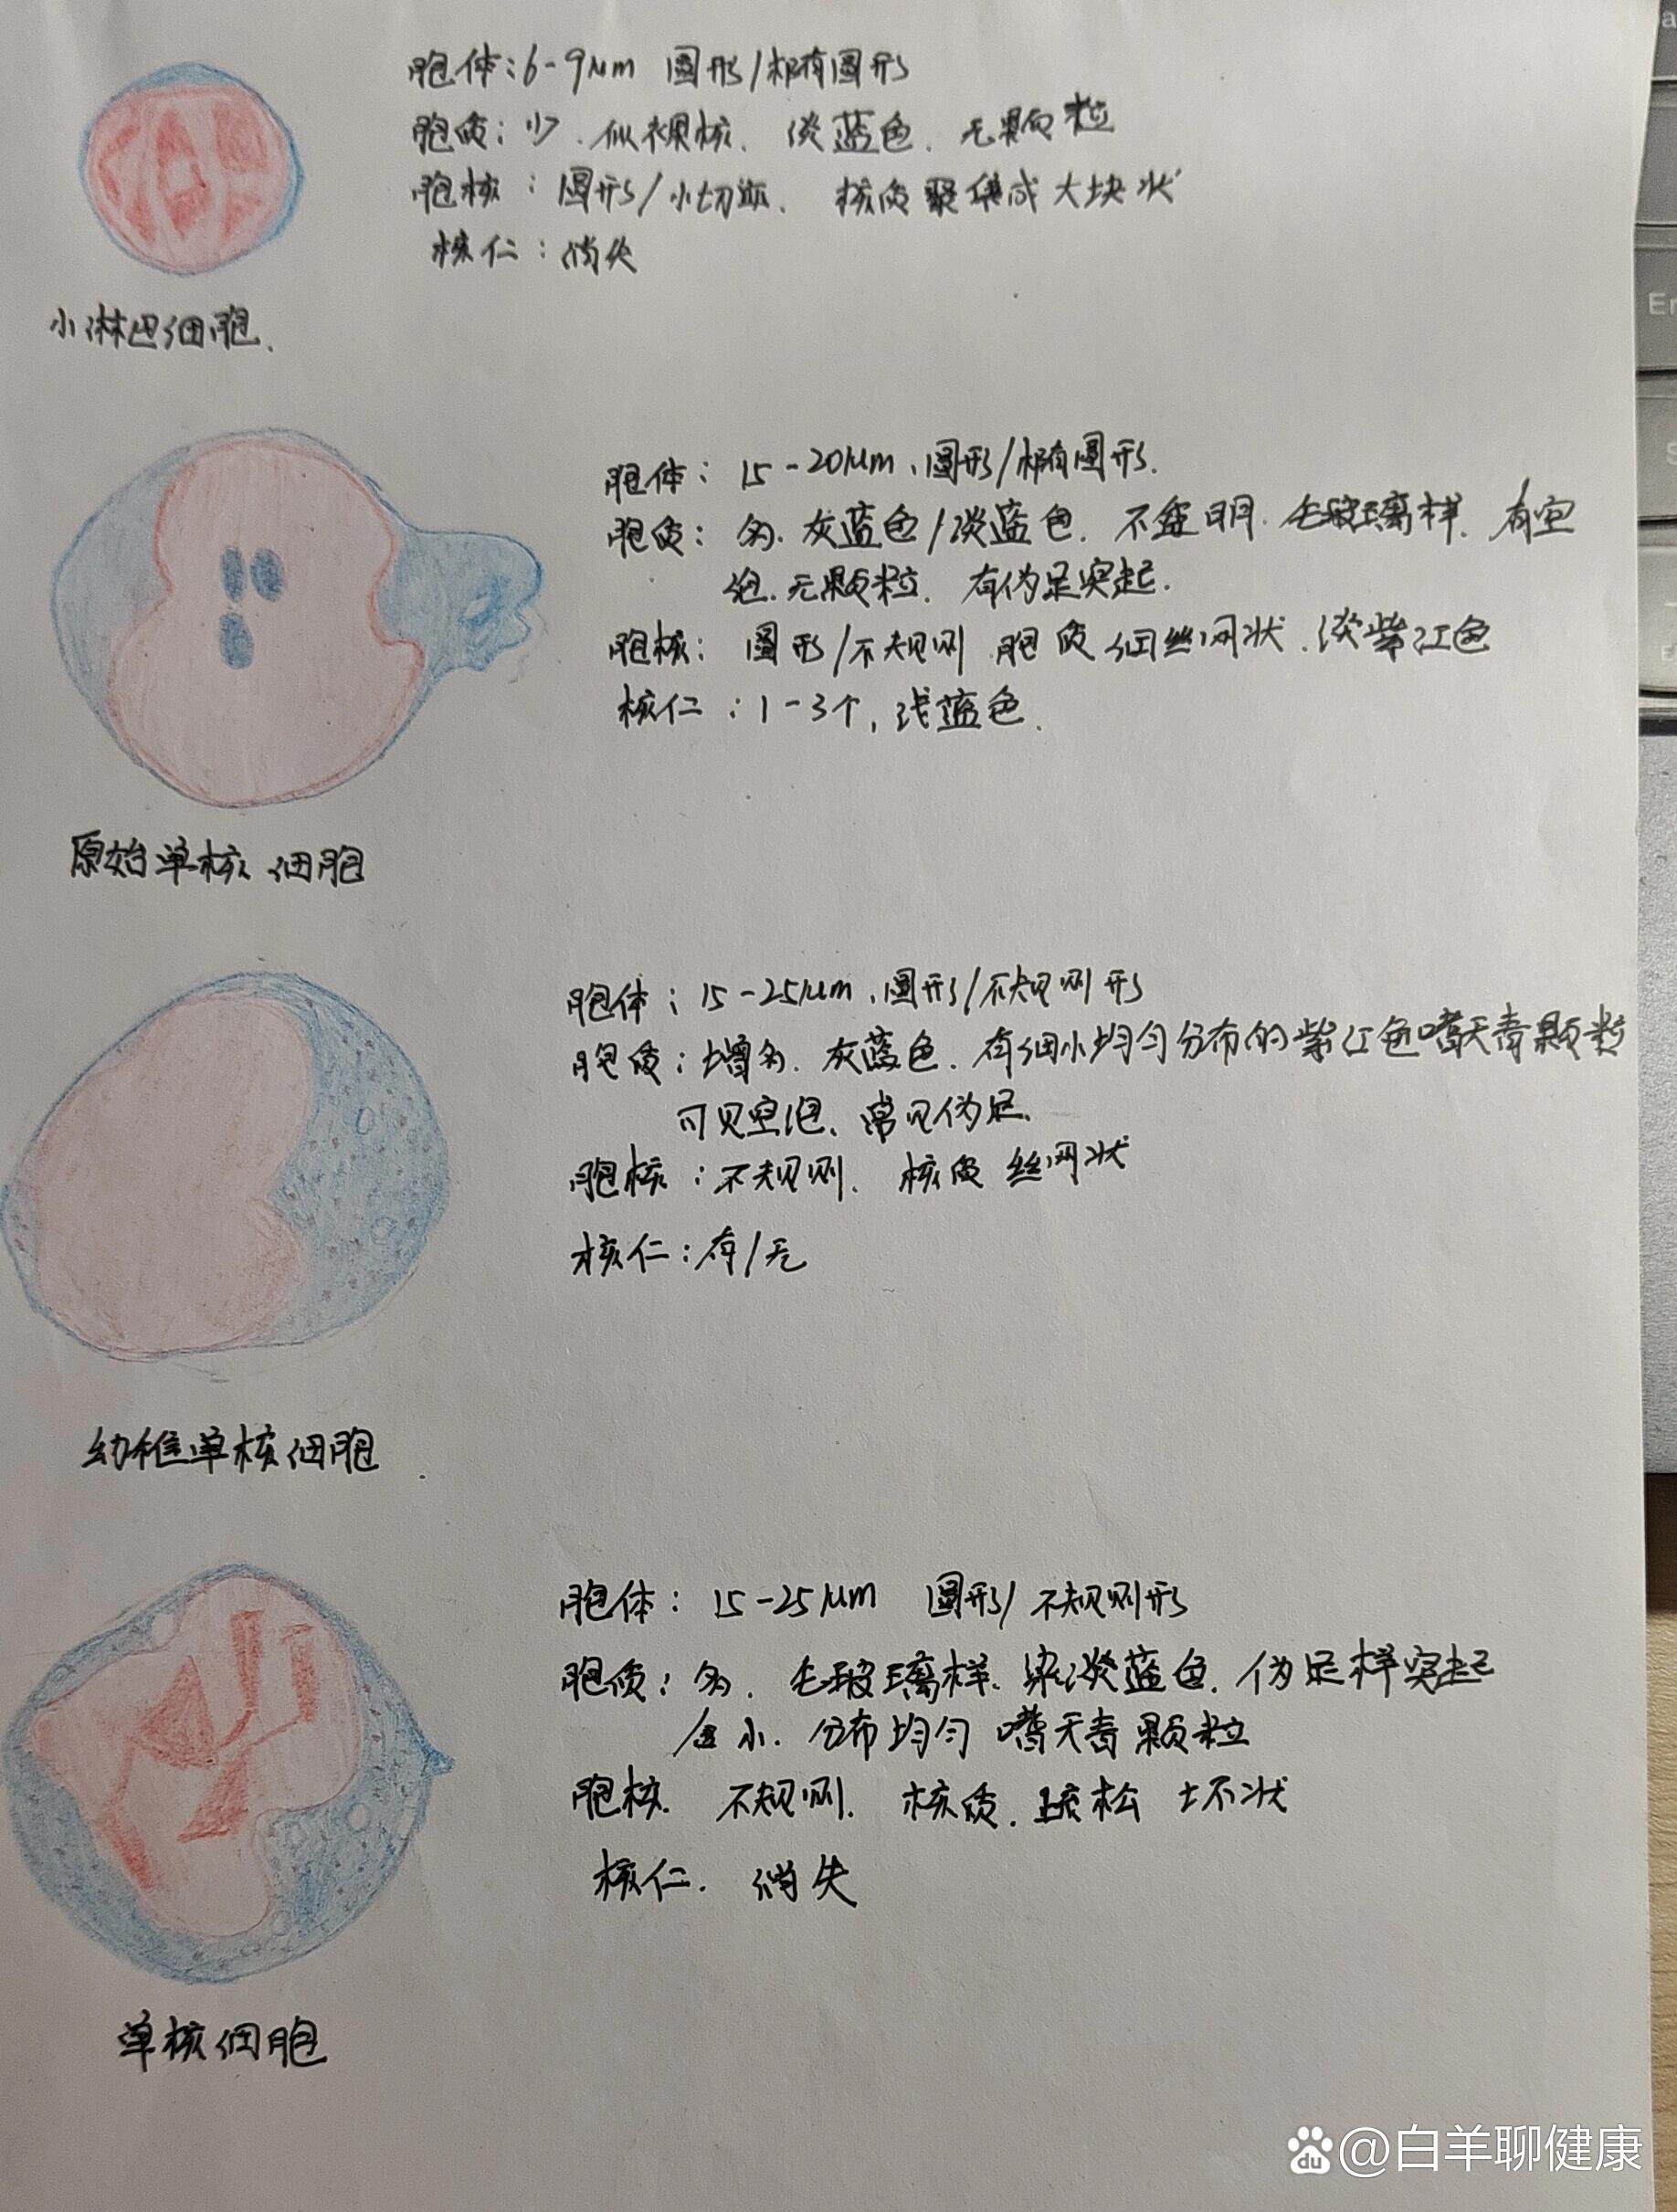 胞体:6-9μm 圆形/椭圆形
胞质:少.似裸核.淡蓝色.无颗粒
胞核:圆形/小切迹.核质聚集成大块状
核仁:消失
小淋巴细胞.
胞体:15-20μm、圆形/椭圆形.
胞质:多.灰蓝色/淡蓝色.不透明.毛玻璃样.有空
泡.无颗粒.有伪足突起.
胞核:圆形/不规则 胞质细丝网状.淡紫红色
核仁:1-3个,浅蓝色.
原始单核细胞
胞体:15-25μm、圆形/不规则形
胞质:增多.灰蓝色.有细小均匀分布的紫红色嗜天青颗粒
可见空泡、常见伪足.
胞核:不规则.核质丝网状
核仁:有/无
幼稚单核细胞
胞体:15-25μm 圆形/不规则形
胞质:多.毛玻璃样.染淡蓝色.伪足样突起
含小.分布均匀嗜天青颗粒
胞核.不规则.核质.疏松 块状
核仁.消失
单核细胞
du @白羊聊健康